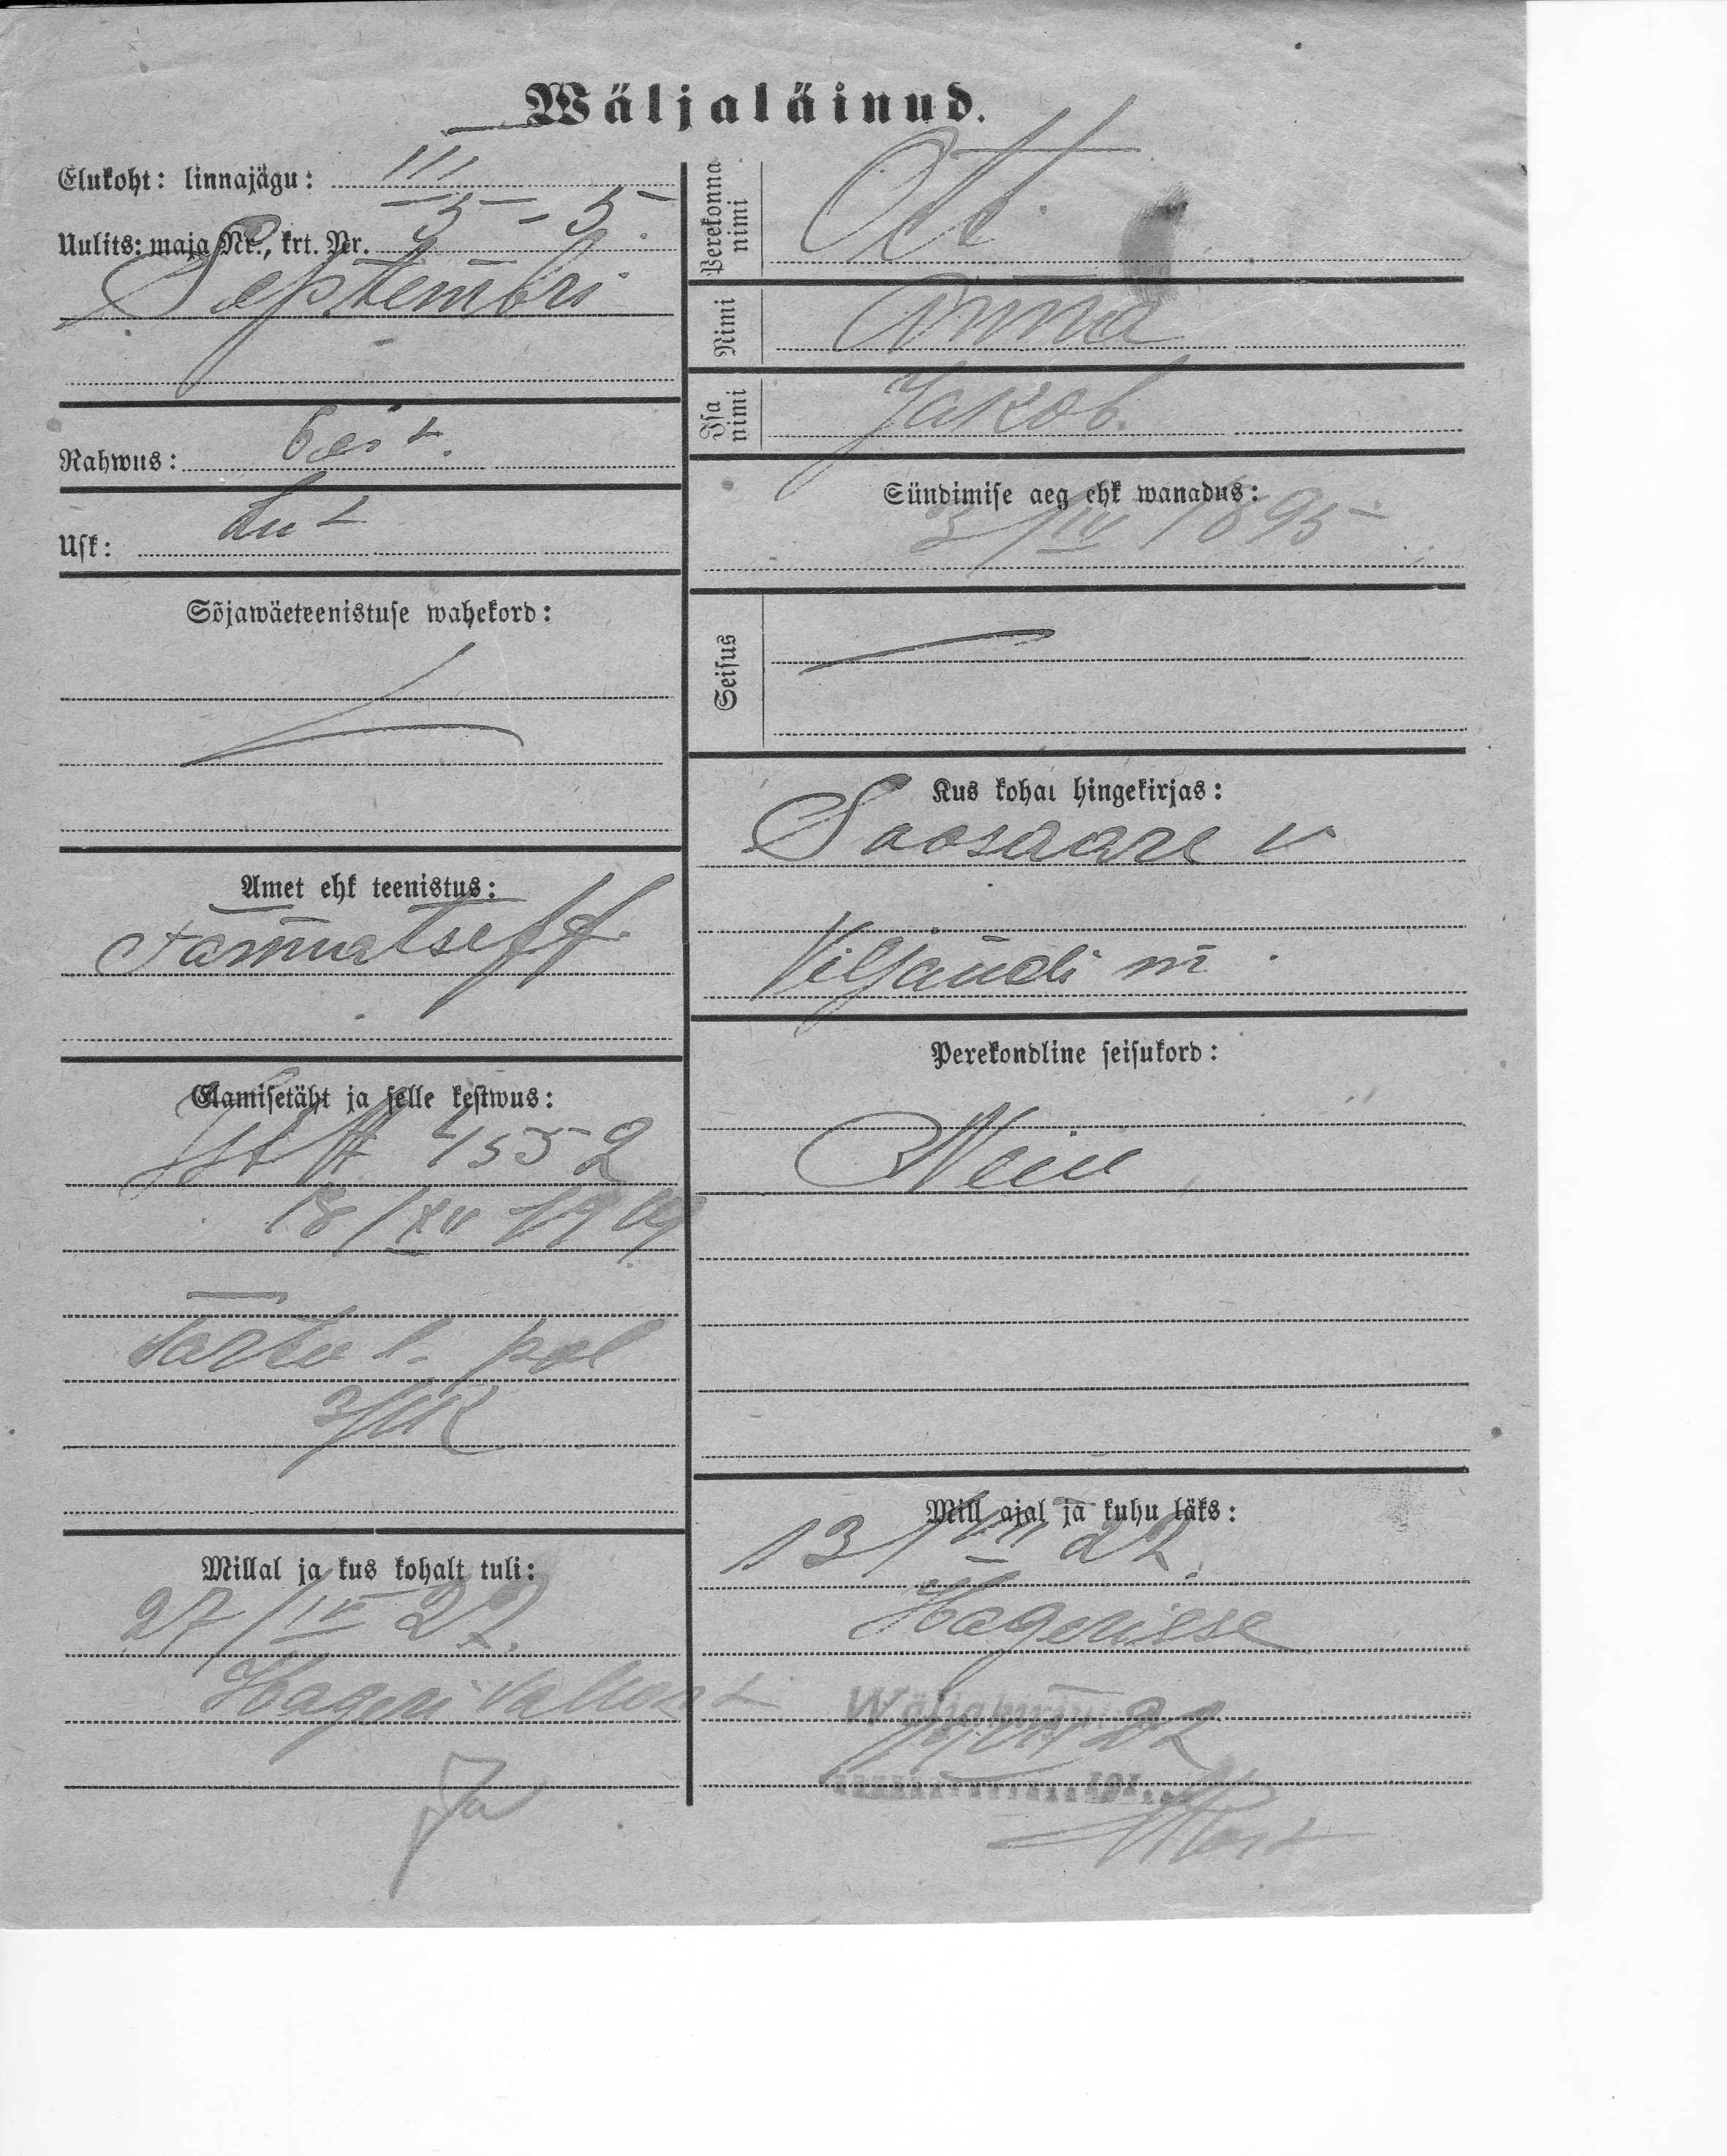 Wäljaläinud.
Elukoht: linnajägu: III
Uulits: maja Nr., krt. Nr. 5 - 5.
Septembri
Rahwus: Eest.
Usk: Lut
Sõjawäeteenistuse wahekord:
Amet ehk teenistus:
Elamisetäht ja selle kestwus:
4552
18/XII 1919
Tartu l. pol
Millal ja kus kohalt tuli:
27/IV 22.
Hageri vallast
Perekonna nimi Ott.
Nimi Anna
Isa nimi Jakob.
Sündimise aeg ehk wanadus:
3/IV 1895
Seisus
Kus kohal hingekirjas:
Soosaare v
Viljandi m.
Perekondline seisukord:
Neiu
Mill ajal ja kuhu läks:
13/VII 22.
Hagerisse